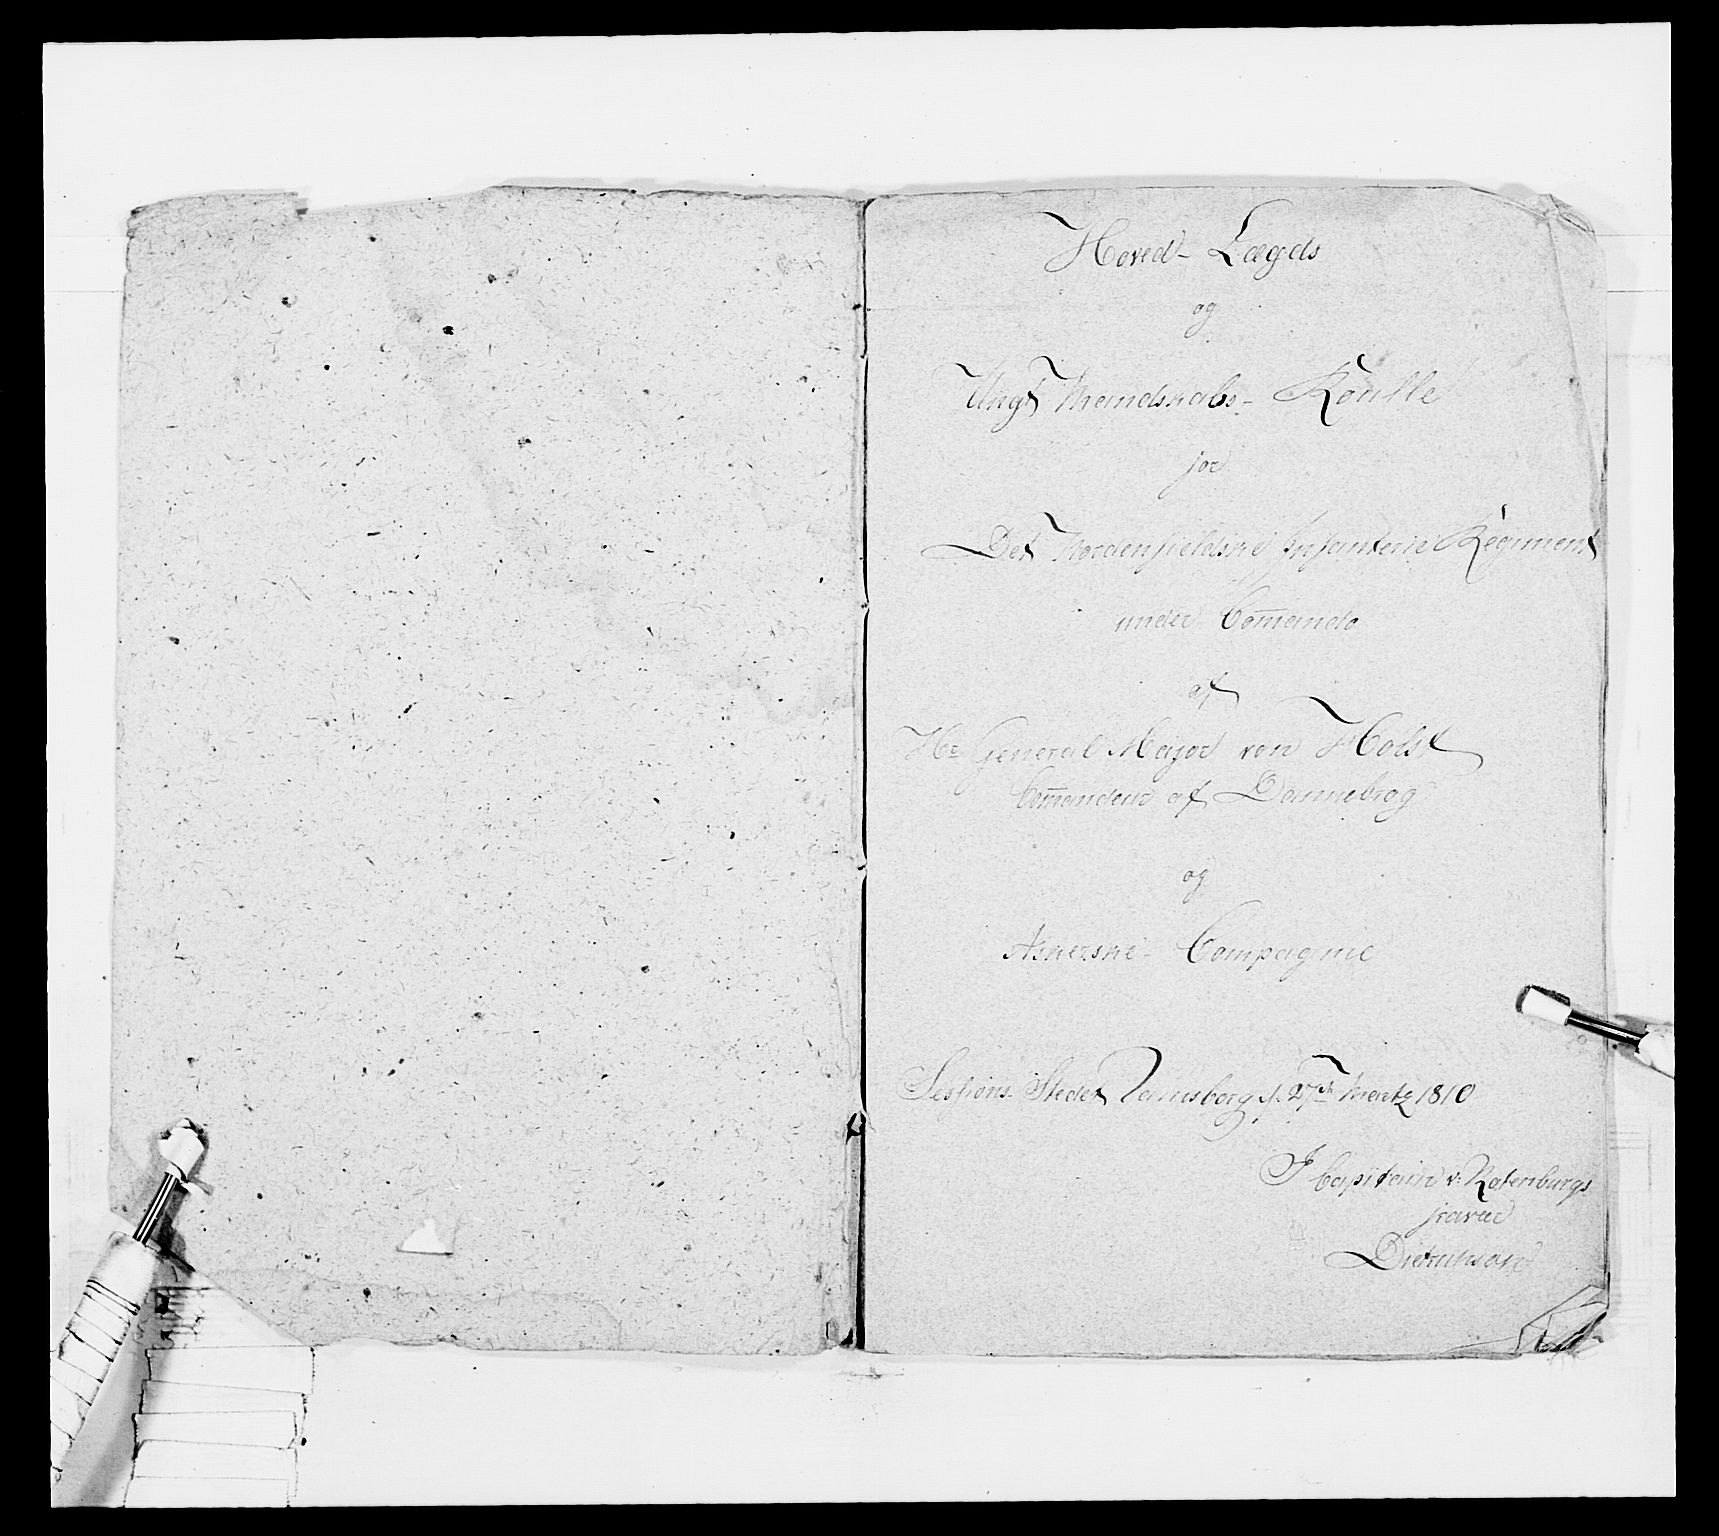 Hoved- Lægds
og
Ungt Mandskabs- Roulle
for
Det Nordenfieldske Infanterie Regiment
under Com̅ando
af
Hr General Major von Holst
Com̅andeur af Dannebrog
og
Askerske- Compagnie
Sessions- Stedet d. 27de Martz 1810
I Capitain v: Rotenburgs
fravær
Dietrichson